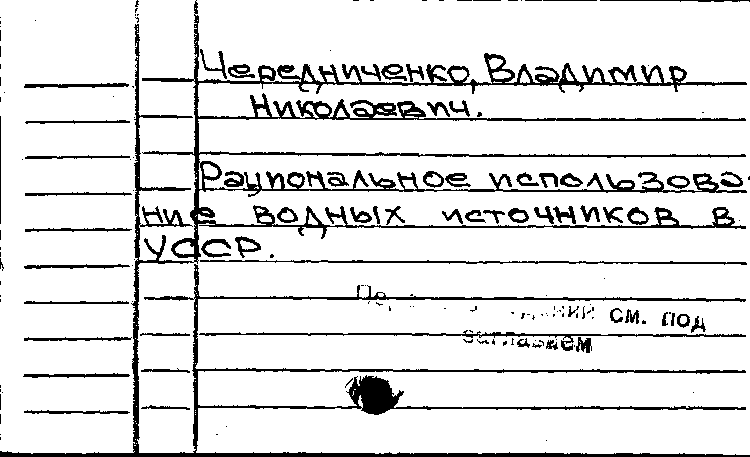 Чередниченко, Владимир
Николаевич.
Рациональное использова-
ние водных источников в
УССР.
см. под
заглавием